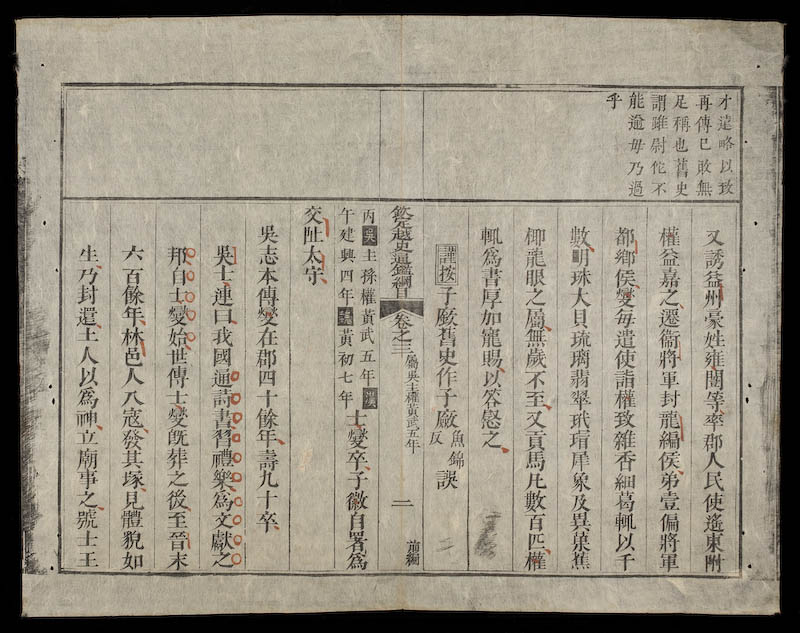 才遠略以致
再傳已敢無
足稱也舊史
謂雖尉佗不
能逾毋乃過
乎
又誘益州豪姓雍闓等率郡人民使遙東附
權益嘉之遷衞將軍封龍編侯弟壹偏將軍
都鄉侯燮每遣使詣權致雜香細葛輒以千
數明珠大貝琉璃翡翠玳瑁犀象及異菓蕉
椰龍眼之屬無歲不至又貢馬凡數百匹權
輒爲書厚加寵賜以答慰之
謹按子厥舊史作子廠魚錦反誤
欽定越史通鑑綱目 卷之三 屬吳主權黃武五年 二 前編
丙吳主孫權黃武五年漢
午建興四年魏黃初七年士燮卒子徽自署爲
交阯太守
吳志本傳燮在郡四十餘年壽九十卒
吳士連曰我國通詩書習禮樂爲文獻之
邦自士燮始世傳士燮旣葬之後至晉末
六百餘年林邑人入寇發其塚見體貌如
生乃封還土人以爲神立廟事之號士王